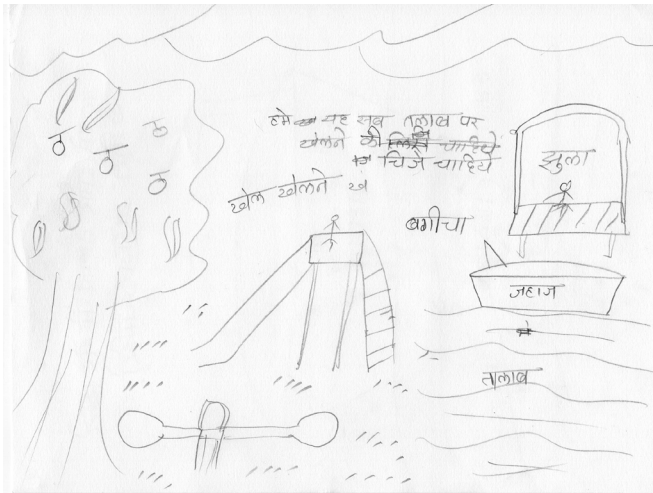 हमे यह सब तलाब पर
खेलने की चाहिये
चिजे चाहिये
खेल खेलने
झुला
बगीचा
जहाज
तालाब